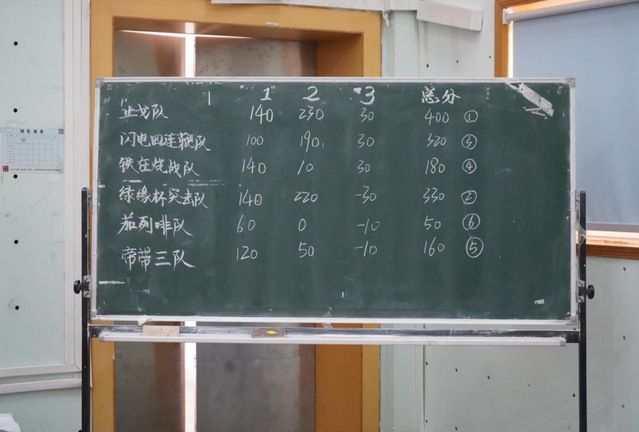 1 2 3 总分
止戈队 140 230 30 400 ①
闪电四连鞭队 100 190 30 320 ③
铁在烧战队 140 10 30 180 ④
绿缘杯突击队 140 220 -30 330 ②
茄列啡队 60 0 -10 50 ⑥
帝带三队 120 50 -10 160 ⑤